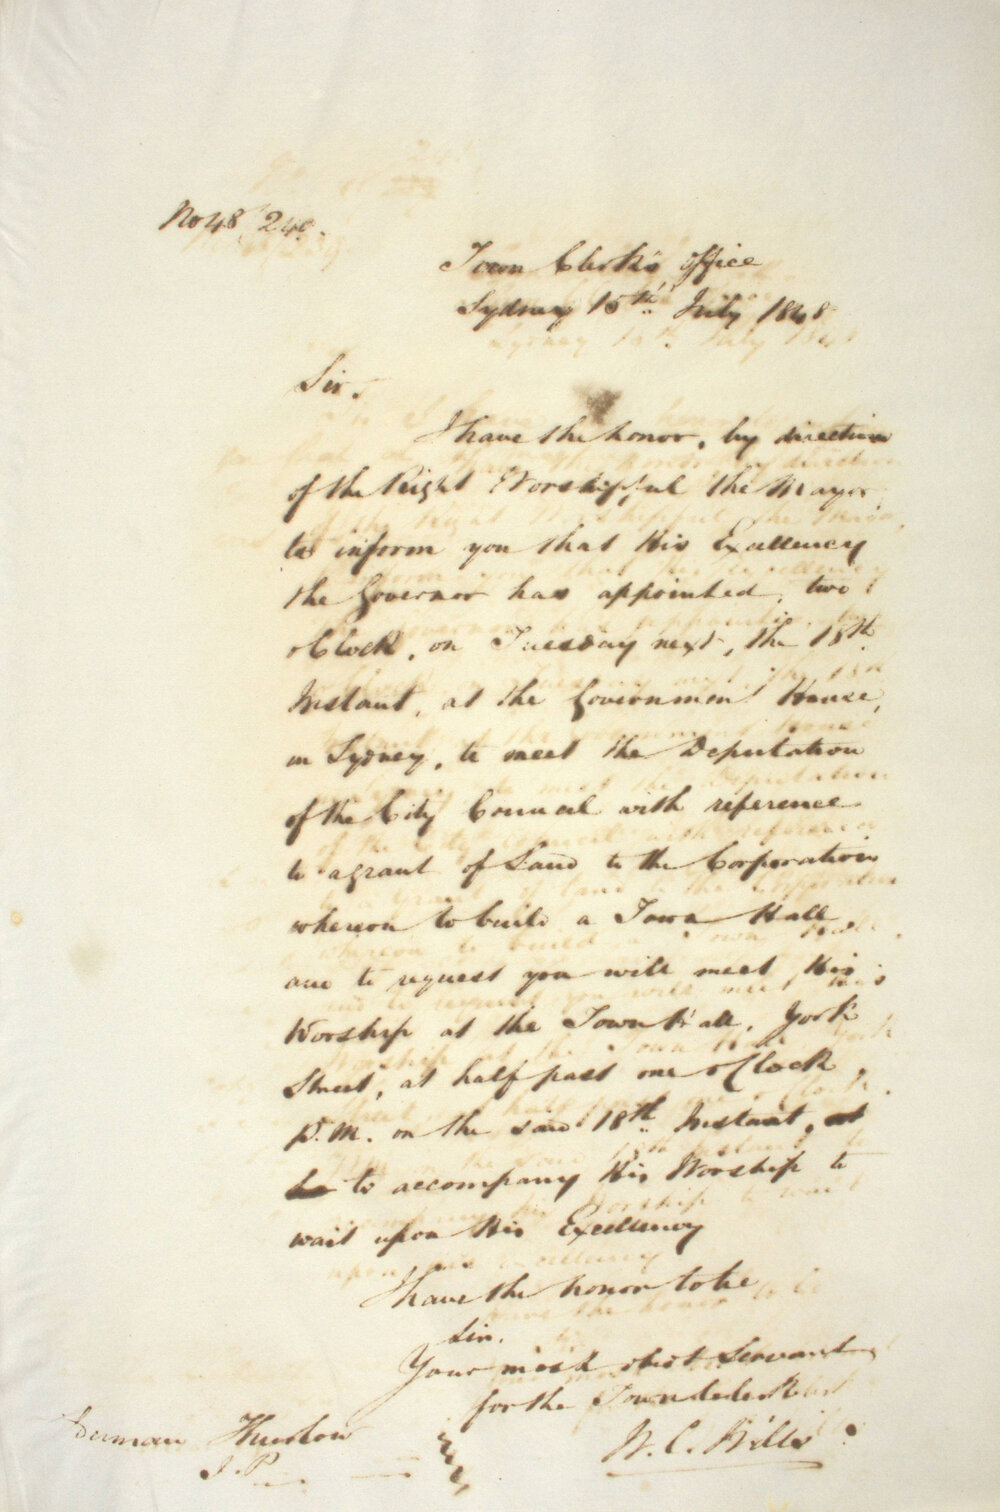 No 48/249.
Town Clerk's Office
Sydney 15th July 1848
Sir,
I have the honor, by direction
of the Right Worshipful the Mayor,
to inform you that His Excellency
the Governor has appointed, two
o'Clock, on Tuesday next, the 18th
Instant, at the Government House,
in Sydney, to meet the Deputation
of the City Council with reference
to a grant of Land to the Corporation
whereon to build a Town Hall,
and to request you will meet His
Worship at the Town Hall, York
Street, at half past one o'Clock,
P.M. on the said 18th Instant,
to accompany His Worship to
wait upon His Excellency
I have the honor to be
Sir,
Your most obed't Servant
for the Town Clerk
W. C. Wills
Alderman Thurlow
J.P.